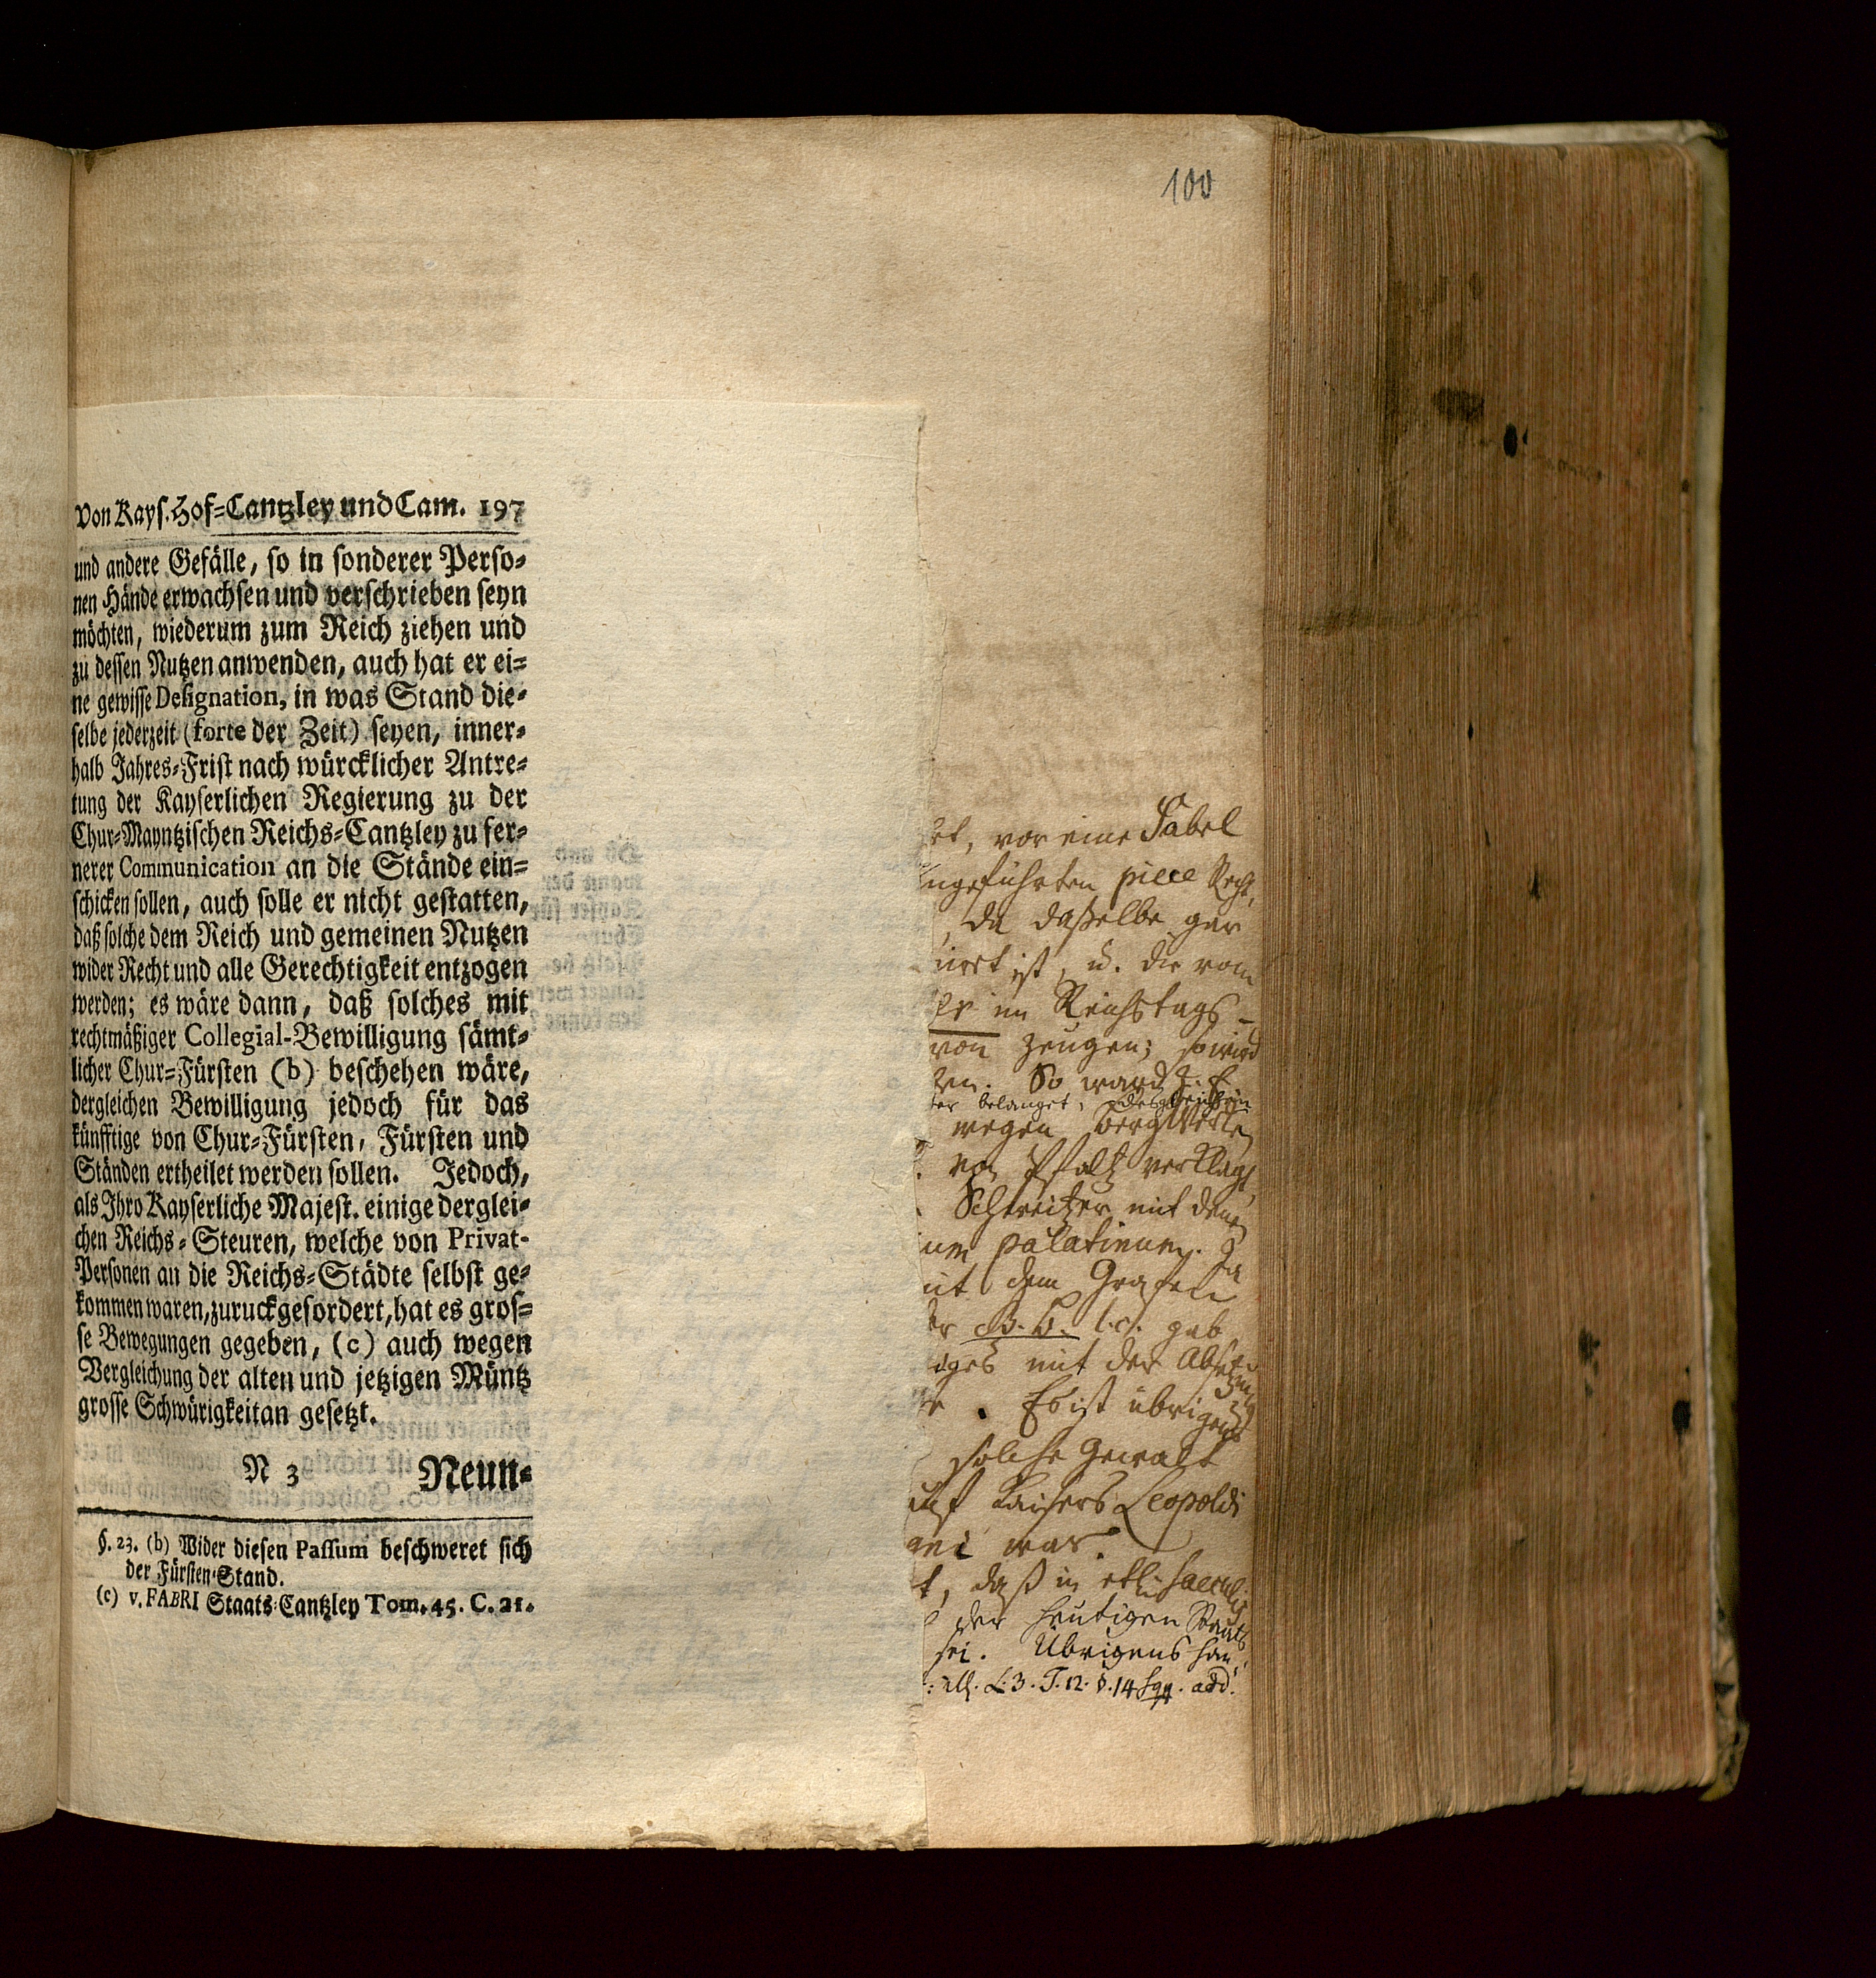 100
Von Kays. Hof-Cantzley und Cam. 197
und andere Gefälle, so in sonderer Perso-
nen Hände erwachsen und verschrieben seyn
möchten, wiederum zum Reich ziehen und
zu dessen Nutzen anwenden, auch hat er ei-
ne gewisse Designation, in was Stand die-
selbe jederzeit (forte der Zeit) seyen, inner-
halb Jahres-Frist nach würcklicher Antre-
tung der Kayserlichen Regierung zu der
Chur-Mayntzischen Reichs-Cantzley zu fer-
nerer Communication an die Stände ein-
schicken sollen, auch solle er nicht gestatten,
daß solche dem Reich und gemeinen Nutzen
wider Recht und alle Gerechtigkeit entzogen
werden; es wäre dann, daß solches mit
rechtmäßiger Collegial-Bewilligung sämt-
licher Chur-Fürsten (b) beschehen wäre,
dergleichen Bewilligung jedoch für das
künfftige von Chur-Fürsten, Fürsten und
Ständen ertheilet werden sollen. Jedoch,
als Ihro Kayserliche Majest. einige derglei-
chen Reichs-Steuren, welche von Privat-
Personen an die Reichs-Städte selbst ge-
kommen waren, zuruckgefordert, hat es gros-
se Bewegungen gegeben, (c) auch wegen
Vergleichung der alten und jetzigen Müntz
grosse Schwürigkeit an gesetzt.
N 3 Neun-
§. 23. (b) Wider diesen Passum beschweret sich
der Fürsten-Stand.
(c) v. FABRI Staats-Cantzley Tom. 45. C. 21.
vor eine Fabel
ngeführten piece
da daßelbe gar
ist, u. die vom
im Reichstags-
von zeugen; so wird
So ward z. E.
belanget,
wegen
Pfaltz verklagt,
Schweitzer mit denen
palatinum.
dem Grafen
l. c. gab
mit der
Es ist übrigens
solche Gewalt
Kaisers Leopoldi
war.
daß in
der heutigen Staats
sei. Übrigens
L. 3. T. 12. §. 14 sqq. add.